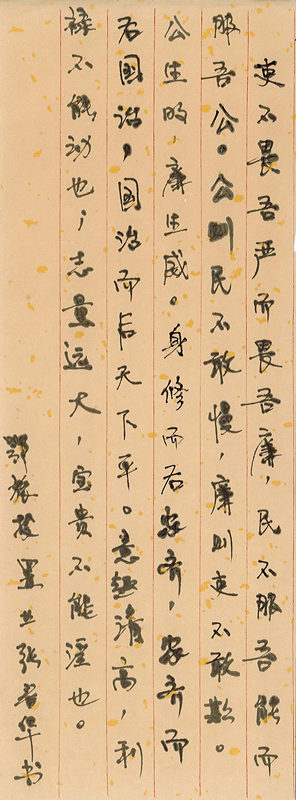 吏不畏吾严而畏吾廉，民不服吾能而
服吾公。公则民不敢慢，廉则吏不敢欺。
公生明，廉生威。身修而后家齐，家齐而
后国治，国治而后天下平。意趣清高，利
禄不能动也；志量远大，富贵不能淫也。
鄂旅投置业张华书